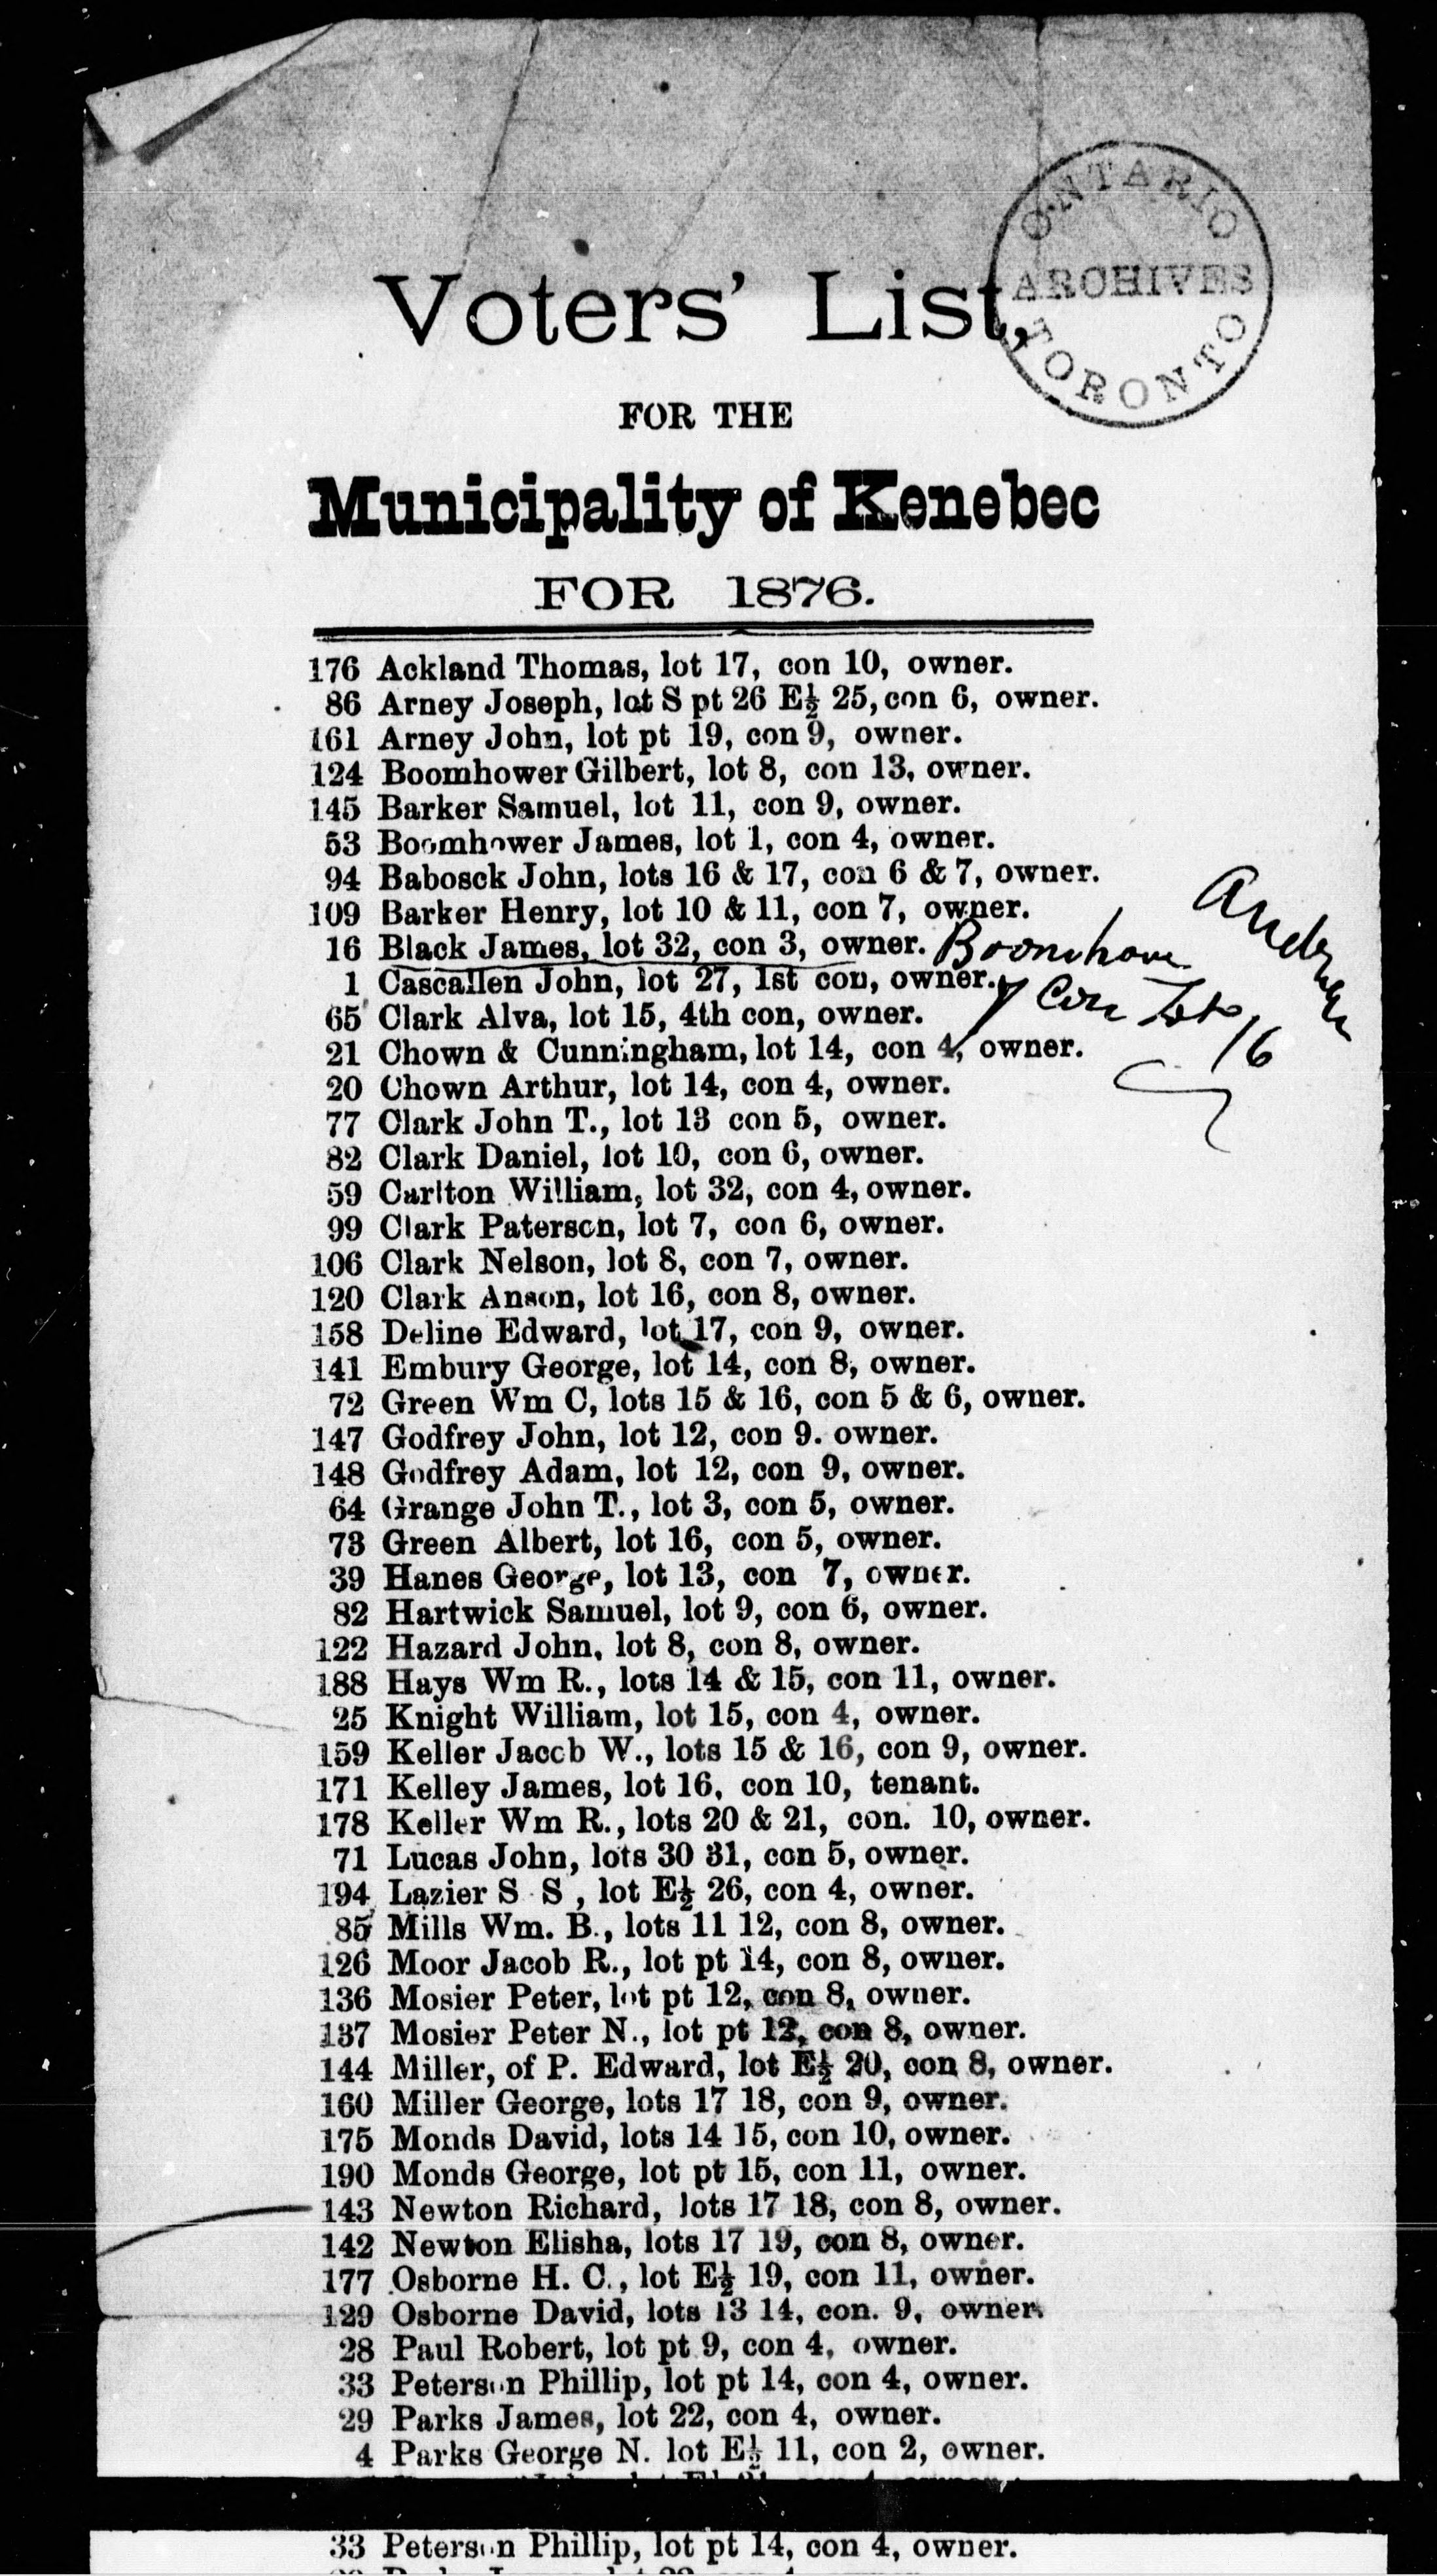 ONTARIO
ARCHIVES
TORONTO
Voters' List,
FOR THE
Municipality of Kenebec
FOR 1876.
176 Ackland Thomas, lot 17, con 10, owner.
86 Arney Joseph, lot S pt 26 E½ 25, con 6, owner.
161 Arney John, lot pt 19, con 9, owner.
124 Boomhower Gilbert, lot 8, con 13, owner.
145 Barker Samuel, lot 11, con 9, owner.
53 Boomhower James, lot 1, con 4, owner.
94 Babosck John, lots 16 & 17, con 6 & 7, owner.
109 Barker Henry, lot 10 & 11, con 7, owner.
16 Black James, lot 32, con 3, owner. Boomhower Andrew
1 Cascallen John, lot 27, 1st con, owner. 7 Con Lot 16
65 Clark Alva, lot 15, 4th con, owner.
21 Chown & Cunningham, lot 14, con 4, owner.
20 Chown Arthur, lot 14, con 4, owner.
77 Clark John T., lot 13 con 5, owner.
82 Clark Daniel, lot 10, con 6, owner.
59 Carlton William, lot 32, con 4, owner.
99 Clark Paterson, lot 7, con 6, owner.
106 Clark Nelson, lot 8, con 7, owner.
120 Clark Anson, lot 16, con 8, owner.
158 Deline Edward, lot 17, con 9, owner.
141 Embury George, lot 14, con 8, owner.
72 Green Wm C, lots 15 & 16, con 5 & 6, owner.
147 Godfrey John, lot 12, con 9. owner.
148 Godfrey Adam, lot 12, con 9, owner.
64 Grange John T., lot 3, con 5, owner.
73 Green Albert, lot 16, con 5, owner.
39 Hanes George, lot 13, con 7, owner.
82 Hartwick Samuel, lot 9, con 6, owner.
122 Hazard John, lot 8, con 8, owner.
188 Hays Wm R., lots 14 & 15, con 11, owner.
25 Knight William, lot 15, con 4, owner.
159 Keller Jaccb W., lots 15 & 16, con 9, owner.
171 Kelley James, lot 16, con 10, tenant.
178 Keller Wm R., lots 20 & 21, con. 10, owner.
71 Lucas John, lots 30 31, con 5, owner.
194 Lazier S S , lot E½ 26, con 4, owner.
85 Mills Wm. B., lots 11 12, con 8, owner.
126 Moor Jacob R., lot pt 14, con 8, owner.
136 Mosier Peter, lot pt 12, con 8, owner.
137 Mosier Peter N., lot pt 12, con 8, owner.
144 Miller, of P. Edward, lot E½ 20, con 8, owner.
160 Miller George, lots 17 18, con 9, owner.
175 Monds David, lots 14 15, con 10, owner.
190 Monds George, lot pt 15, con 11, owner.
143 Newton Richard, lots 17 18, con 8, owner.
142 Newton Elisha, lots 17 19, con 8, owner.
177 Osborne H. C., lot E½ 19, con 11, owner.
129 Osborne David, lots 13 14, con. 9, owner.
28 Paul Robert, lot pt 9, con 4, owner.
33 Peterson Phillip, lot pt 14, con 4, owner.
29 Parks James, lot 22, con 4, owner.
4 Parks George N. lot E½ 11, con 2, owner.
33 Peterson Phillip, lot pt 14, con 4, owner.